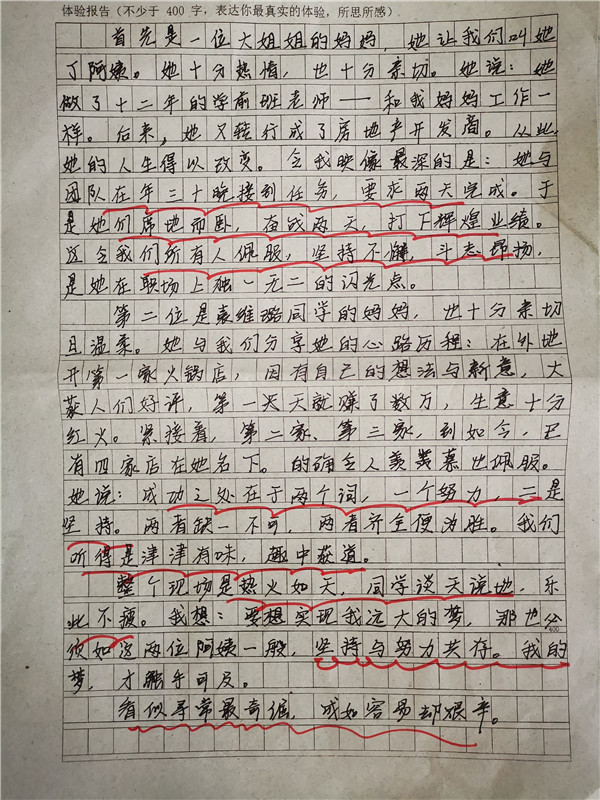 体验报告（不少于 400 字，表达你最真实的体验，所思所感）
首先是一位大姐姐的妈妈，她让我们叫她
丁阿姨。她十分热情，也十分亲切。她说：她
做了十二年的学前班老师——和我妈妈工作一
样。后来，她又转行成了房地产开发商。从此，
她的人生得以改变。令我映像最深的是：她与
团队在年三十晚接到任务，要求两天完成。于
是她们席地而卧，奋战两天，打下辉煌业绩。
这令我们所有人佩服，坚持不懈，斗志昂扬，
是她在职场上独一无二的闪光点。
第二位是袁维璐同学的妈妈，也十分亲切
且温柔。她与我们分享她的心路历程：在外地
开第一家火锅店，因有自己的想法与新意，大
获人们好评，第一天就赚了数万，生意十分
红火。紧接着，第二家、第三家，到如今，已
有四家店在她名下。的确令人羡慕也佩服。
她说：成功之处在于两个词，一个努力，二是
坚持。两者缺一不可，两者齐全便为胜。我们
听得是津津有味，趣中获道。
整个现场是热火如天，同学谈天说地，乐
此不疲。我想：要想实现我远大的梦，那也必
须如这两位阿姨一般，坚持与努力共存。我的
400
梦，才触手可及。
看似寻常最奇崛，成如容易却艰辛。